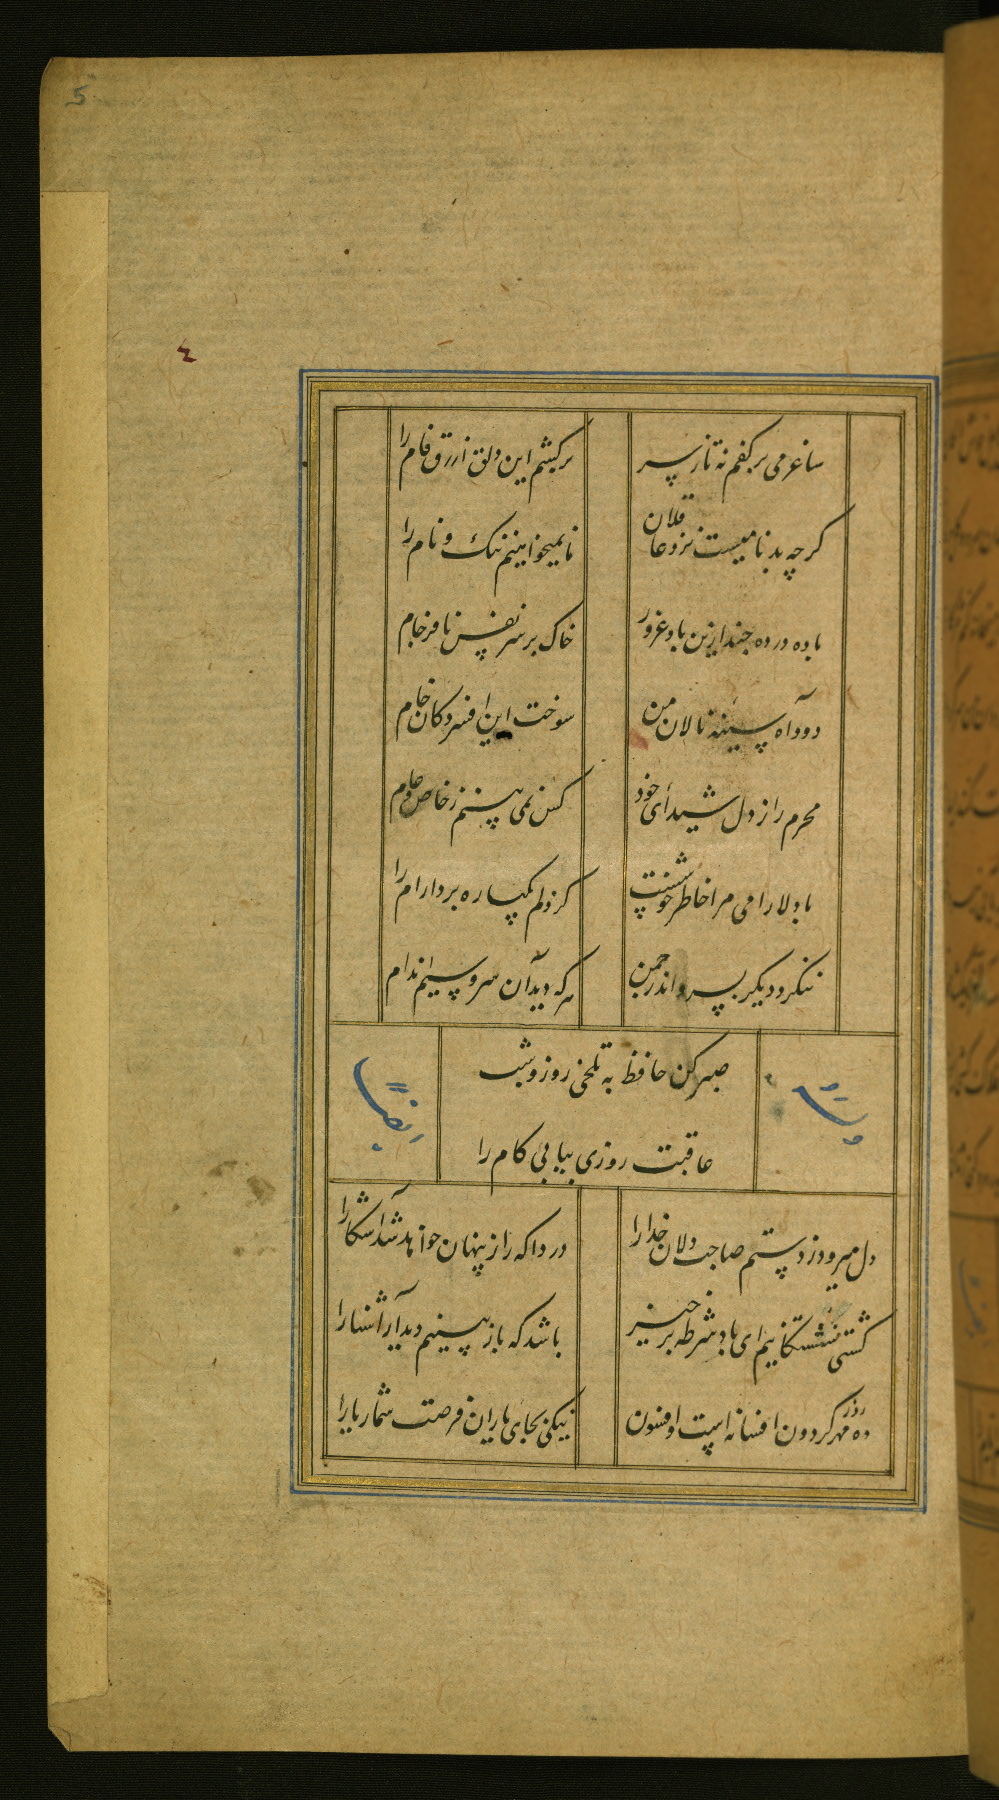 5
٤
ساغر می بر کفم نه تا ز سر
برکشم این دلق ازرق فام را
گرچه بدنامیست نزد عاقلان
ما نمیخواهیم ننک و نام را
باده در ده چند ازین باد غرور
خاک بر سر نفس نافرجام
دود آه سینه نالان من
سوخت این افسردکان خام
محرم راز دل شیدای خود
کس نمی بینم ز خاص و عام
با دلارامی مرا خاطر خوشست
کز دلم یکباره برد آرام را
ننکرد دیکر بسرو اندر چمن
هرکه دید آن سرو سیم اندام
صبر کن حافظ به تلخی روز و شب
عاقبت روزی بیابی کام را
وله
ایضاً
دل میرود ز دستم صاحب دلان خدا را
دردا که راز پنهان خواهد شد آشکارا
کشتی نشستکانیم ای باد شرطه برخیز
باشد که باز بینیم دیدار آشنا را
ده روز مهر کردون افسانه است و افسون
نیکی بجای یاران فرصت شمار یارا